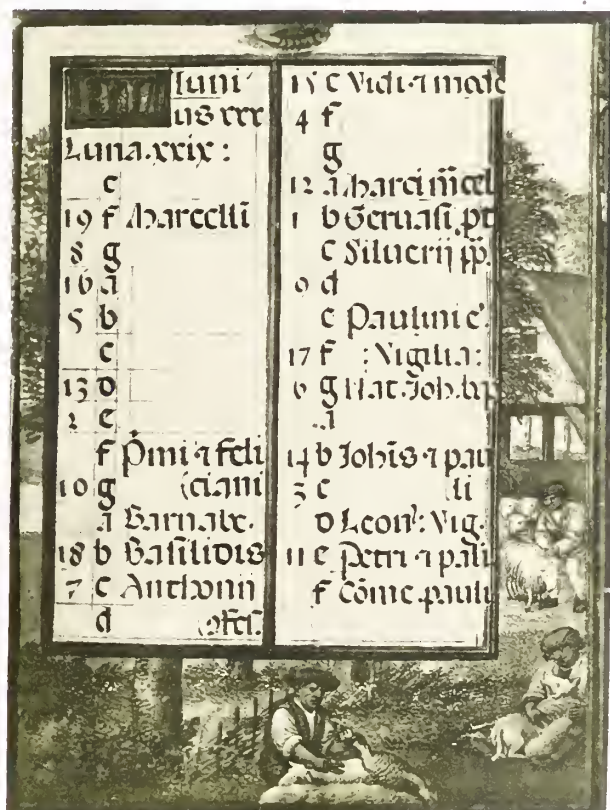 Iuni
us xxx
Luna.xxix :
e
19 f Marcelli
8 g
16 a
5 b
c
13 d
2 e
f P̄mi ⁊ feli
10 g (ciani
a Barnabe.
18 b Basilidis
7 c Anthonii
d ꝯfes.
15 e Viti ⁊ mode
4 f
g
12 a Marci m̄cel
1 b Geruasi. pt
c Siluerij pp.
9 d
e Paulini e.
17 f : Vigilia :
6 g Nat. Joh. bp
a
14 b Johīs ⁊ pau
3 c li
d Leon: Vig.
11 e Petri ⁊ pali
f Cōme. pauli